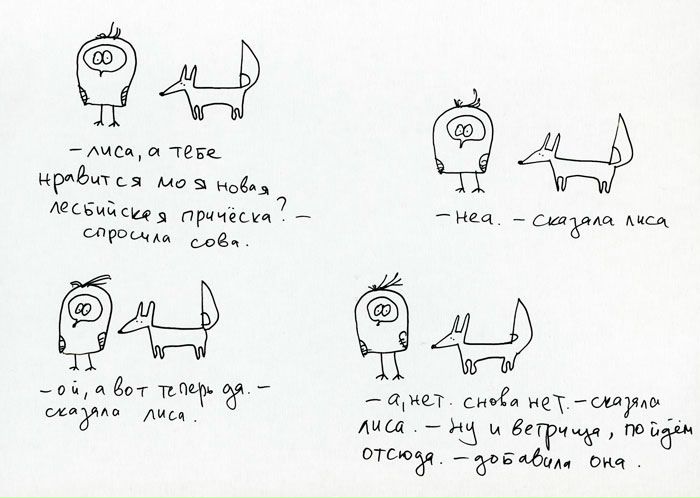 – лиса, а тебе
нравится моя новая
лесбийская причёска? –
спросила сова.
– неа. – сказала лиса
– ой, а вот теперь да. –
сказала лиса.
– а, нет. снова нет. – сказала
лиса. – ну и ветрища, пойдём
отсюда. – добавила она.